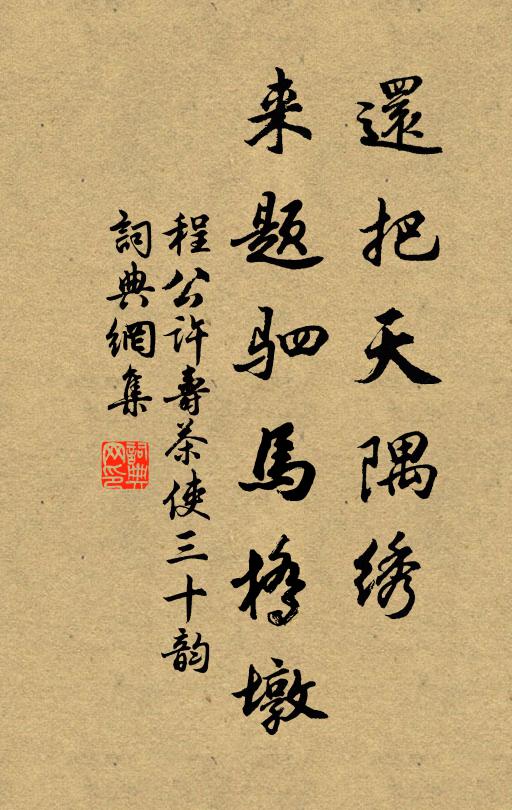 還把天隅绣
来题驷馬橋墩
程公許壽茶使三十韵
詞典網集
詞典网印